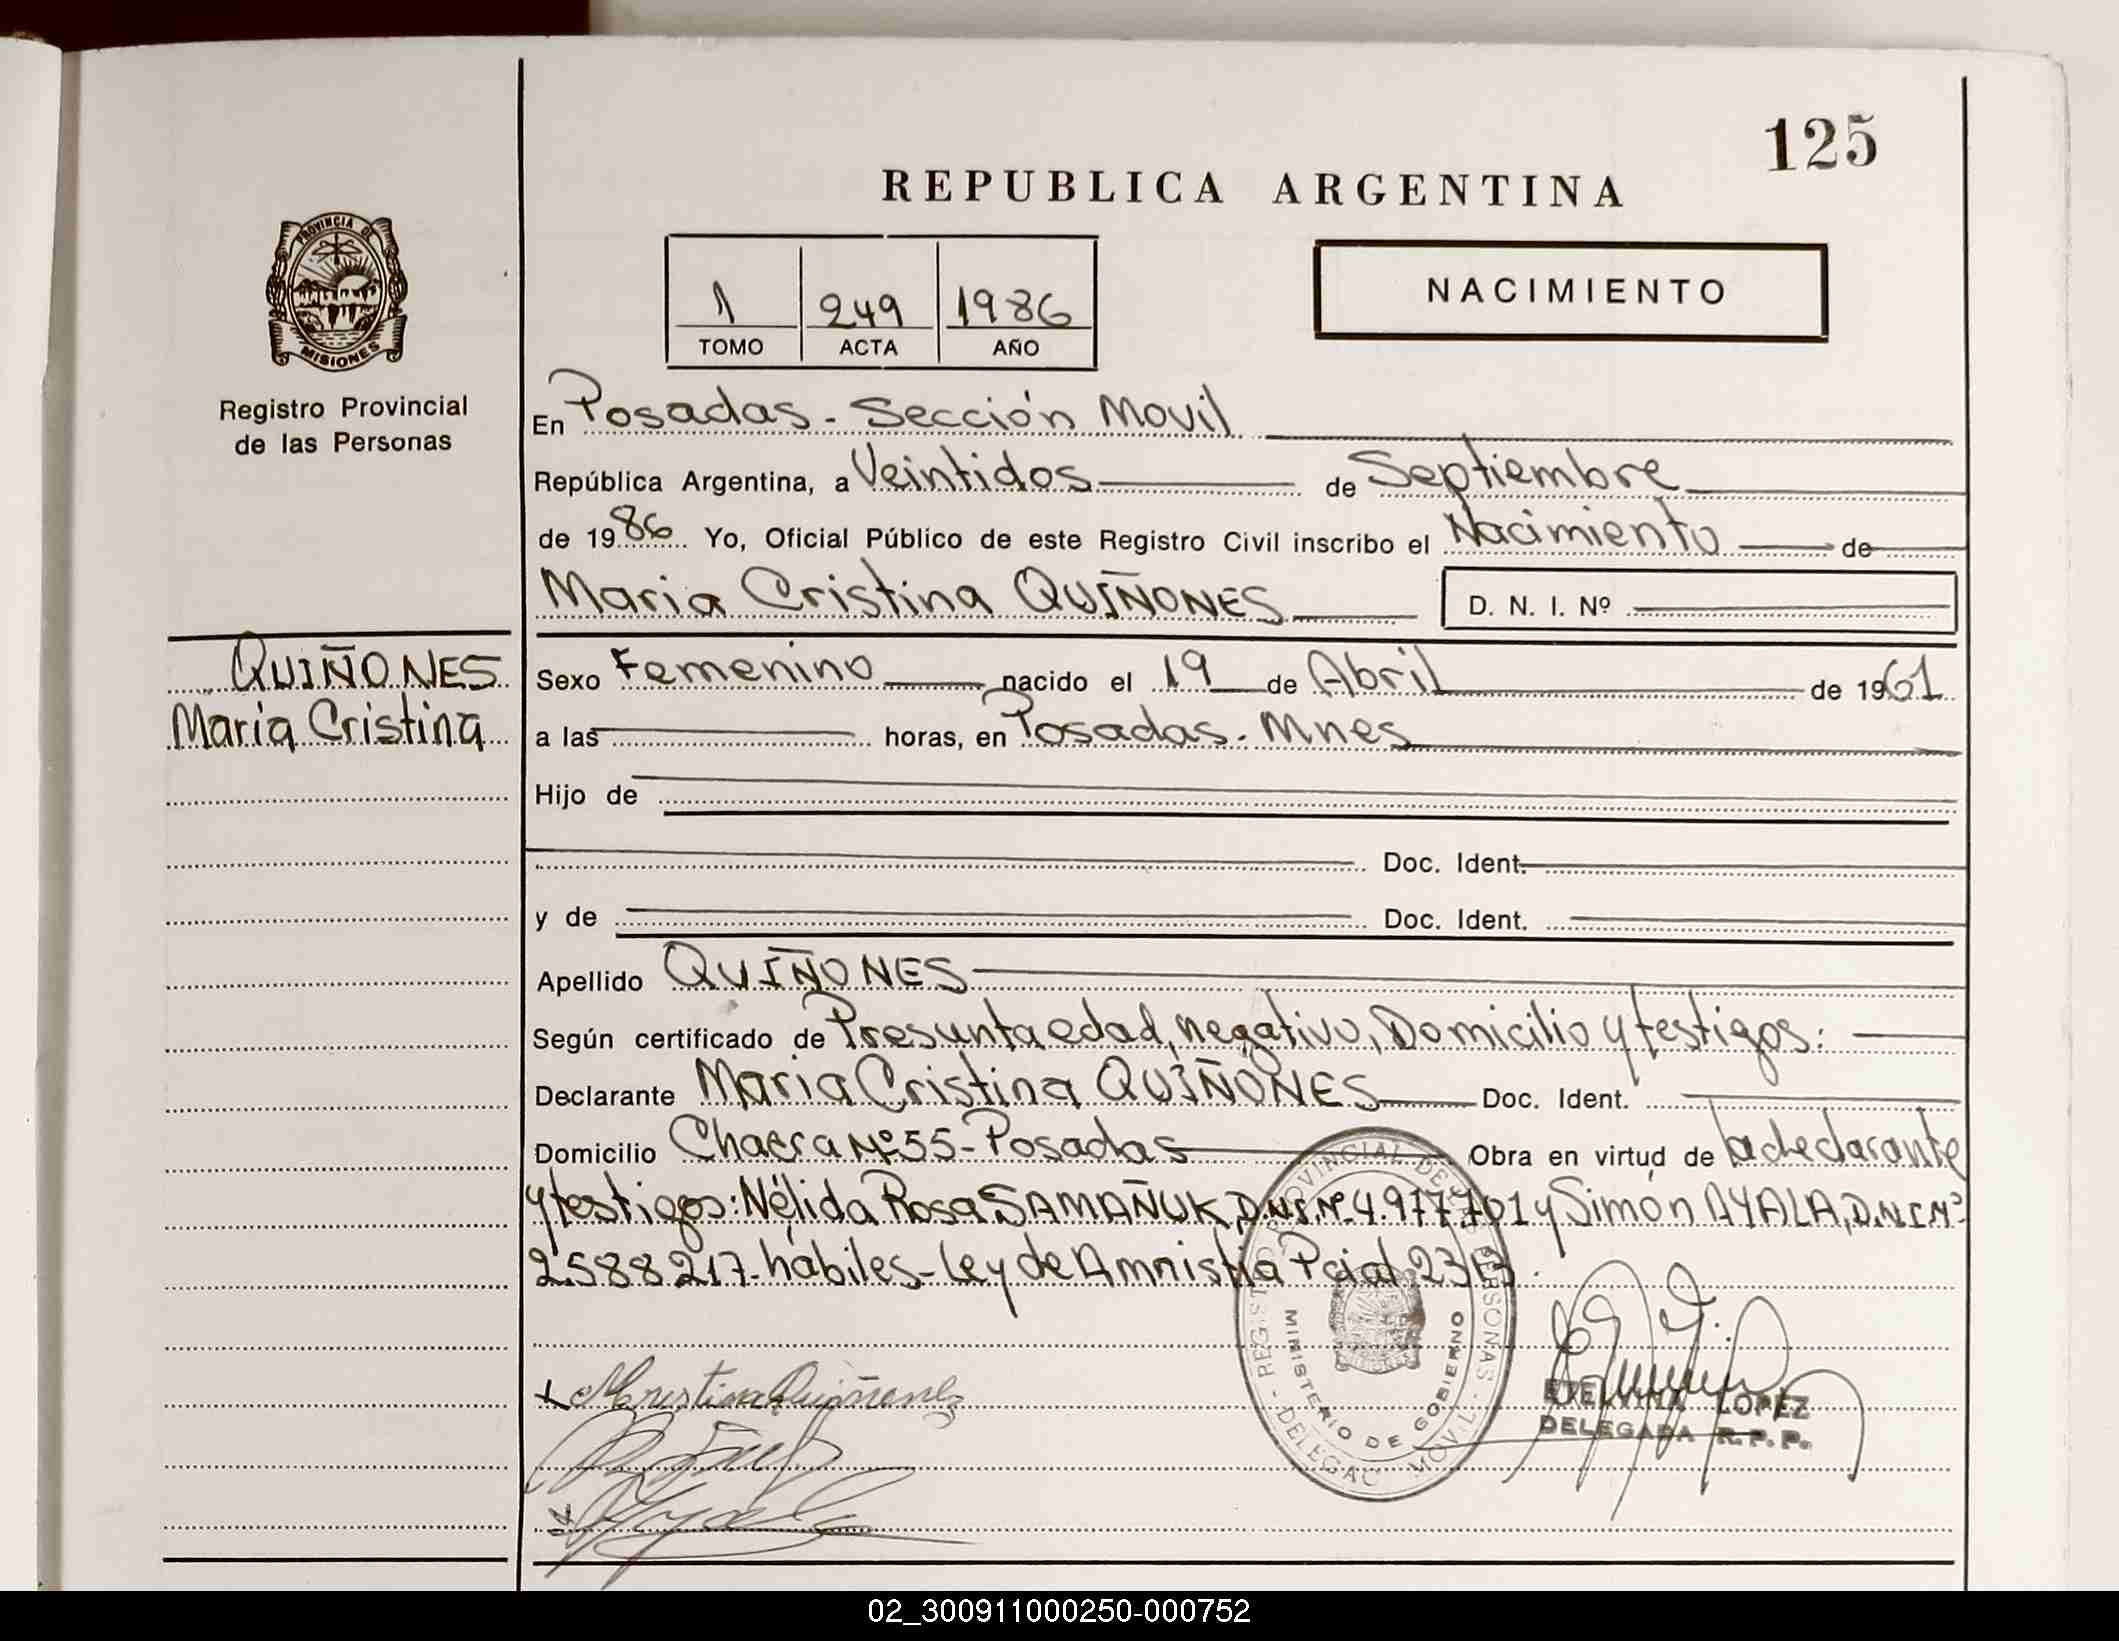 125
REPUBLICA ARGENTINA
PROVINCIA DE
MISIONES
1 249 1986
TOMO ACTA AÑO
NACIMIENTO
Registro Provincial
de las Personas
En Posadas - Sección Movil
República Argentina, a Veintidos de Septiembre
de 1986 Yo, Oficial Público de este Registro Civil inscribo el Nacimiento de
Maria Cristina QUIÑONES D. N. I. Nº
QUIÑONES
Maria Cristina
Sexo Femenino nacido el 19 de Abril de 1961
a las horas, en Posadas. Mnes
Hijo de
Doc. Ident.
y de Doc. Ident.
Apellido QUIÑONES
Según certificado de Presunta edad, negativo, Domicilio y testigos:
Declarante Maria Cristina QUIÑONES Doc. Ident.
Domicilio Chacra Nº 55 - Posadas Obra en virtud de la declarante
y testigos: Nélida Rosa SAMAÑUK, D.N.I. Nº 4.977.701 y Simón AYALA, D.N.I Nº
2.588.217. hábiles - Ley de Amnistía Pcial 2313.
REGISTRO PROVINCIAL DE LAS PERSONAS - DELEGAC MOVIL -
MINISTERIO DE GOBIERNO
x M Cristina Quiñonez
ETELVINA LOPEZ
DELEGADA R.P.P.
02_300911000250-000752